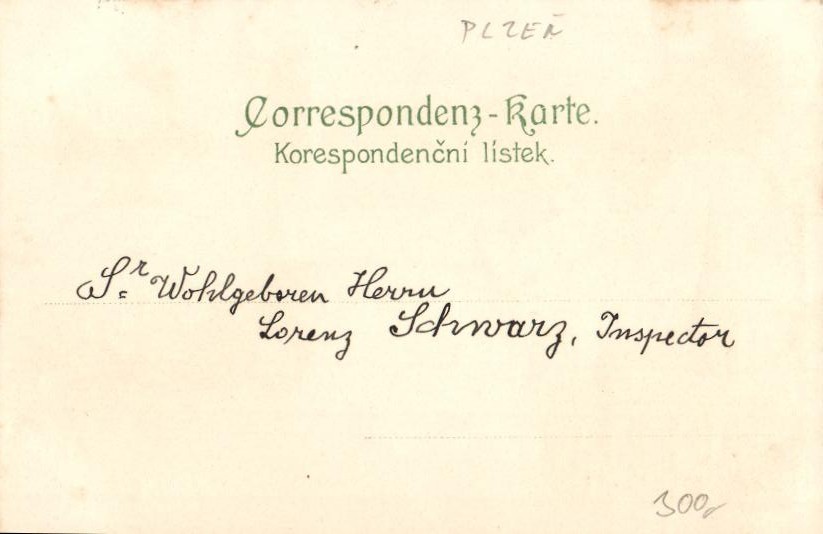 PLZEŇ
Correspondenz-Karte.
Korespondenční lístek.
Sr Wohlgeboren Herrn
Lorenz Schwarz, Inspector
300,